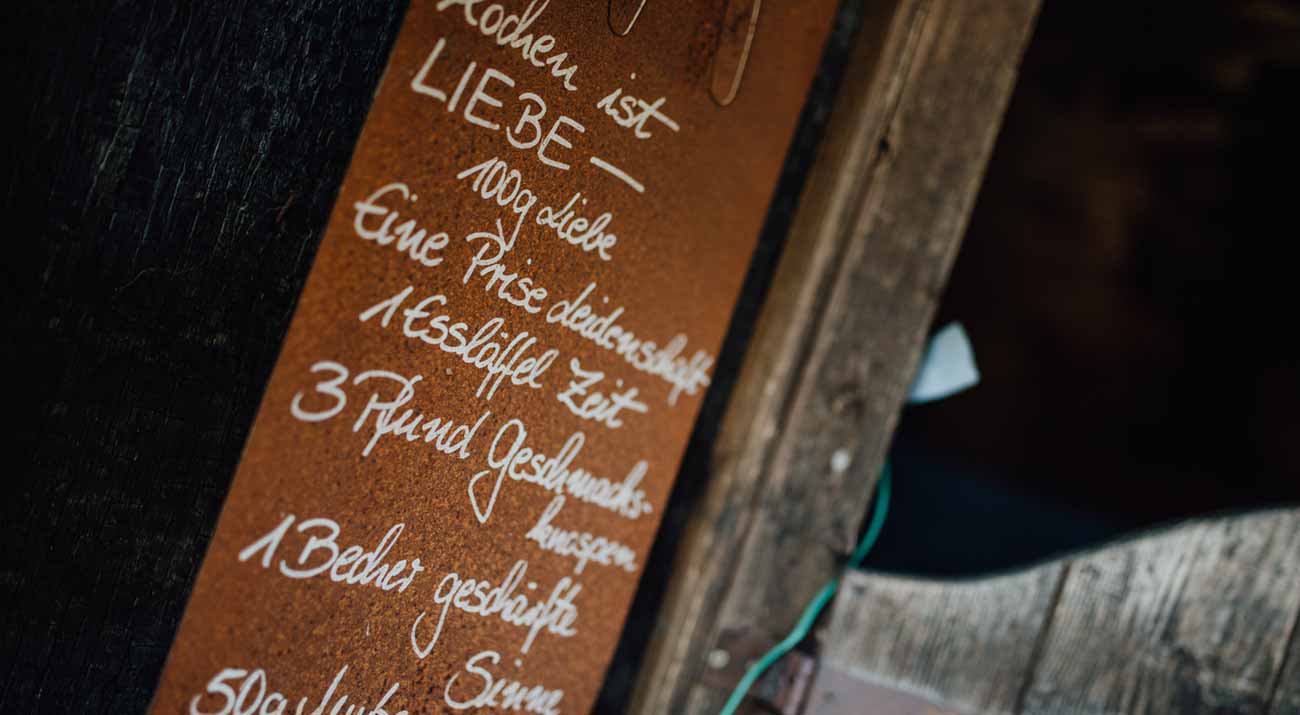 Kochen ist
LIEBE —
100g Liebe
Eine Prise Leidenschaft
1 Esslöffel Zeit
3 Pfund Geschmacks-
knospen
1 Becher geschärfte
Sinne
50g